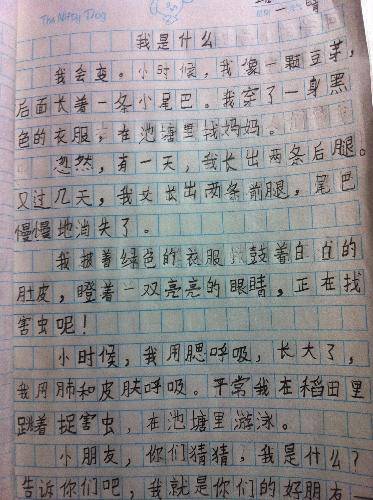 The Nifty Dog
我是什么
我会变。小时候,我像一颗豆芽,
后面长着一条小尾巴。我穿了一身黑
色的衣服,在池塘里找妈妈。
忽然,有一天,我长出两条后腿。
又过几天,我又长出两条前腿,尾巴
慢慢地消失了。
我披着绿色的衣服,鼓着白白的
肚皮,瞪着一双亮亮的眼睛,正在找
害虫呢!
小时候,我用腮呼吸,长大了,
我用肺和皮肤呼吸。平常我在稻田里
跳着捉害虫,在池塘里游泳。
小朋友,你们猜猜,我是什么?
告诉你们吧,我就是你们的好朋友